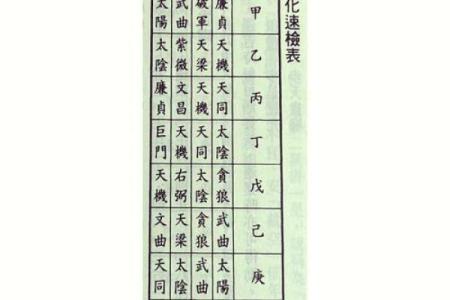 化速檢表
甲 廉貞 破軍 武曲 太陽
乙 天機 天梁 紫微 太陰
丙 天同 天機 文昌 廉貞
丁 太陰 天同 天機 巨門
戊 貪狼 太陰 右弼 天機
己 武曲 貪狼 天梁 文曲
庚 太陽 武曲 太陰 天同